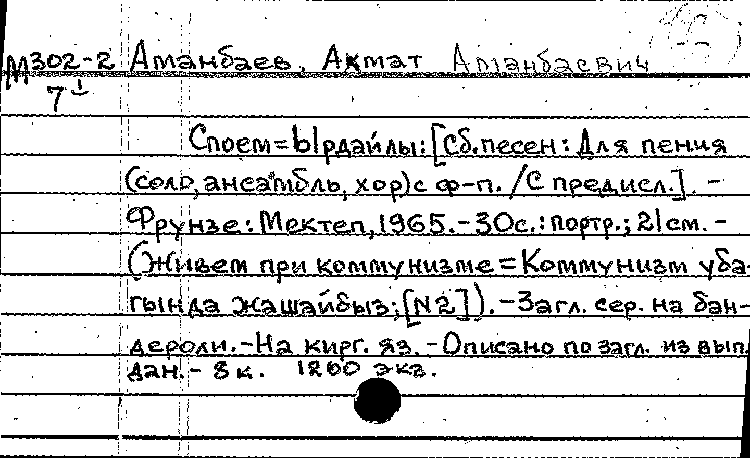 М302-2 Аманбаев, Акмат Аманбаевич
7
Споем=Ырдайлы:[Сб.песен: Для пения
(соло, ансамбль, хор) с ф-п. /С предисл.]. -
Фрунзе: Мектеп, 1965.-30с.: портр.; 21см. -
(Живем при коммунизме=Коммунизм уба-
гында жашайбыз; [N2]). -Загл. сер. на бан-
дероли.-На кирг. яз. -Описано по загл. из вып.
дан.- 8к. 1260 экз.